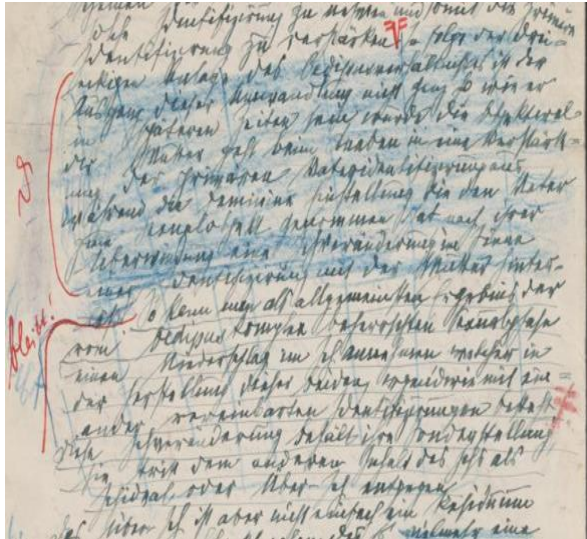 Identifizierung zu nehmen und somit die primäre
Identifizierung zu verstärken. In folge der drei-
eckigen Anlage des Oedipusverhältnisses ist der
Ausgang dieser Umwandlung nicht ganz so wie er
in späteren Zeiten sein würde die Objektwal
der Mutter geht beim Knaben in eine Verstärk-
ung der primären Vateridentifizierung aus
während die feminine Einstellung die den Vater
zum genommen hat nach ihrer
Ueberwindung eine Ichveränderung im Sinne
einer Identifizierung mit der Mutter hinter-
So kann man als allgemeinstes Ergebnis der
vom Oedipus Komplex beherrschten Sexualphase
einen Niederschlag im Ich annehmen welcher in
der Herstellung dieser beiden irgendwie mit ein-
ander vereinbarten Identifizierungen besteht
Diese Ichveränderung behält ihre Sonderstellung
sie tritt dem anderen Inhalt des Ichs als
Ichideal oder Über-Ich entgegen
Das Über-Ich ist aber nicht einfach ein Residuum
vielmehr eine
bleibt!